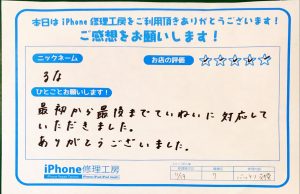 本日は iPhone 修理工房をご利用頂きありがとうございます！
ご感想をお願いします！
ニックネーム
お店の評価
るな
ひとことお願いします！
最初から最後までていねいに対応して
いただきました。
ありがとうございました。
iPhone修理工房